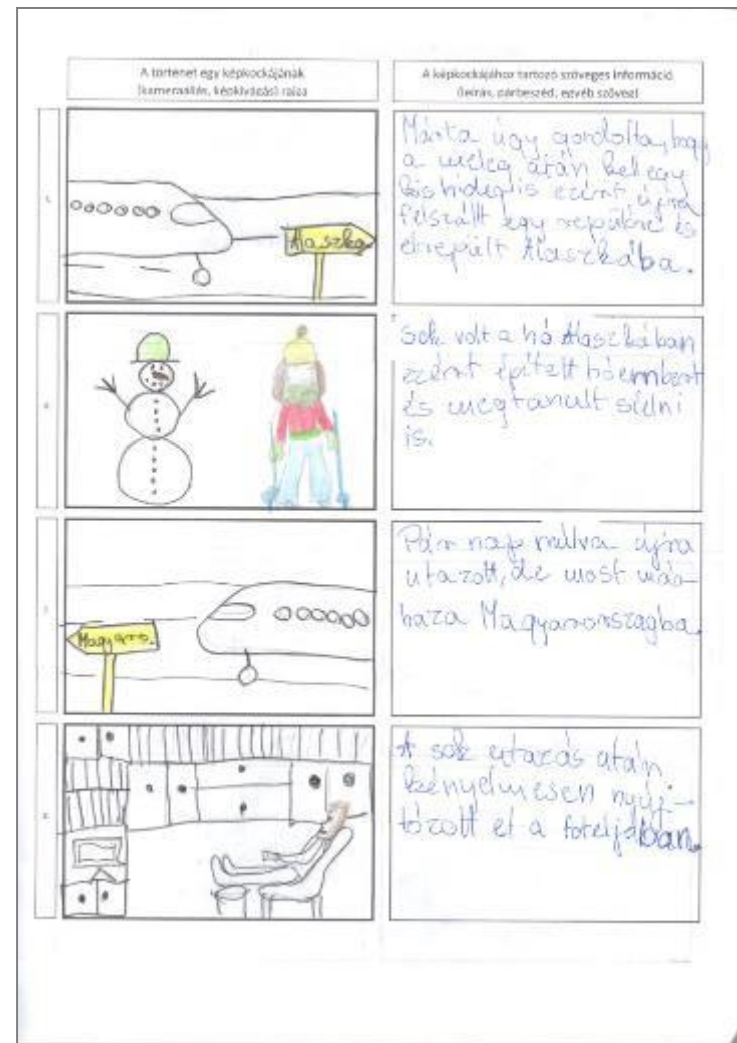 A történet egy képkockájának
(kameraállás, képkivágás) rajza
A képkockájához tartozó szöveges információ
(leírás, párbeszéd, egyéb szöveg)
Alaszka
Márta úgy gondolta, hogy
a meleg után kell egy
kis hideg is ezért újra
felszállt egy repülőre és
elrepült Alaszkába.
Sok volt a hó Alaszkában
ezért épített hóembert
és megtanult síelni
is.
Magyaro.
Pár nap múlva újra
utazott, de most már
haza Magyarországba.
A sok utazás után
kényelmesen nyúj-
tózott el a foteljában.